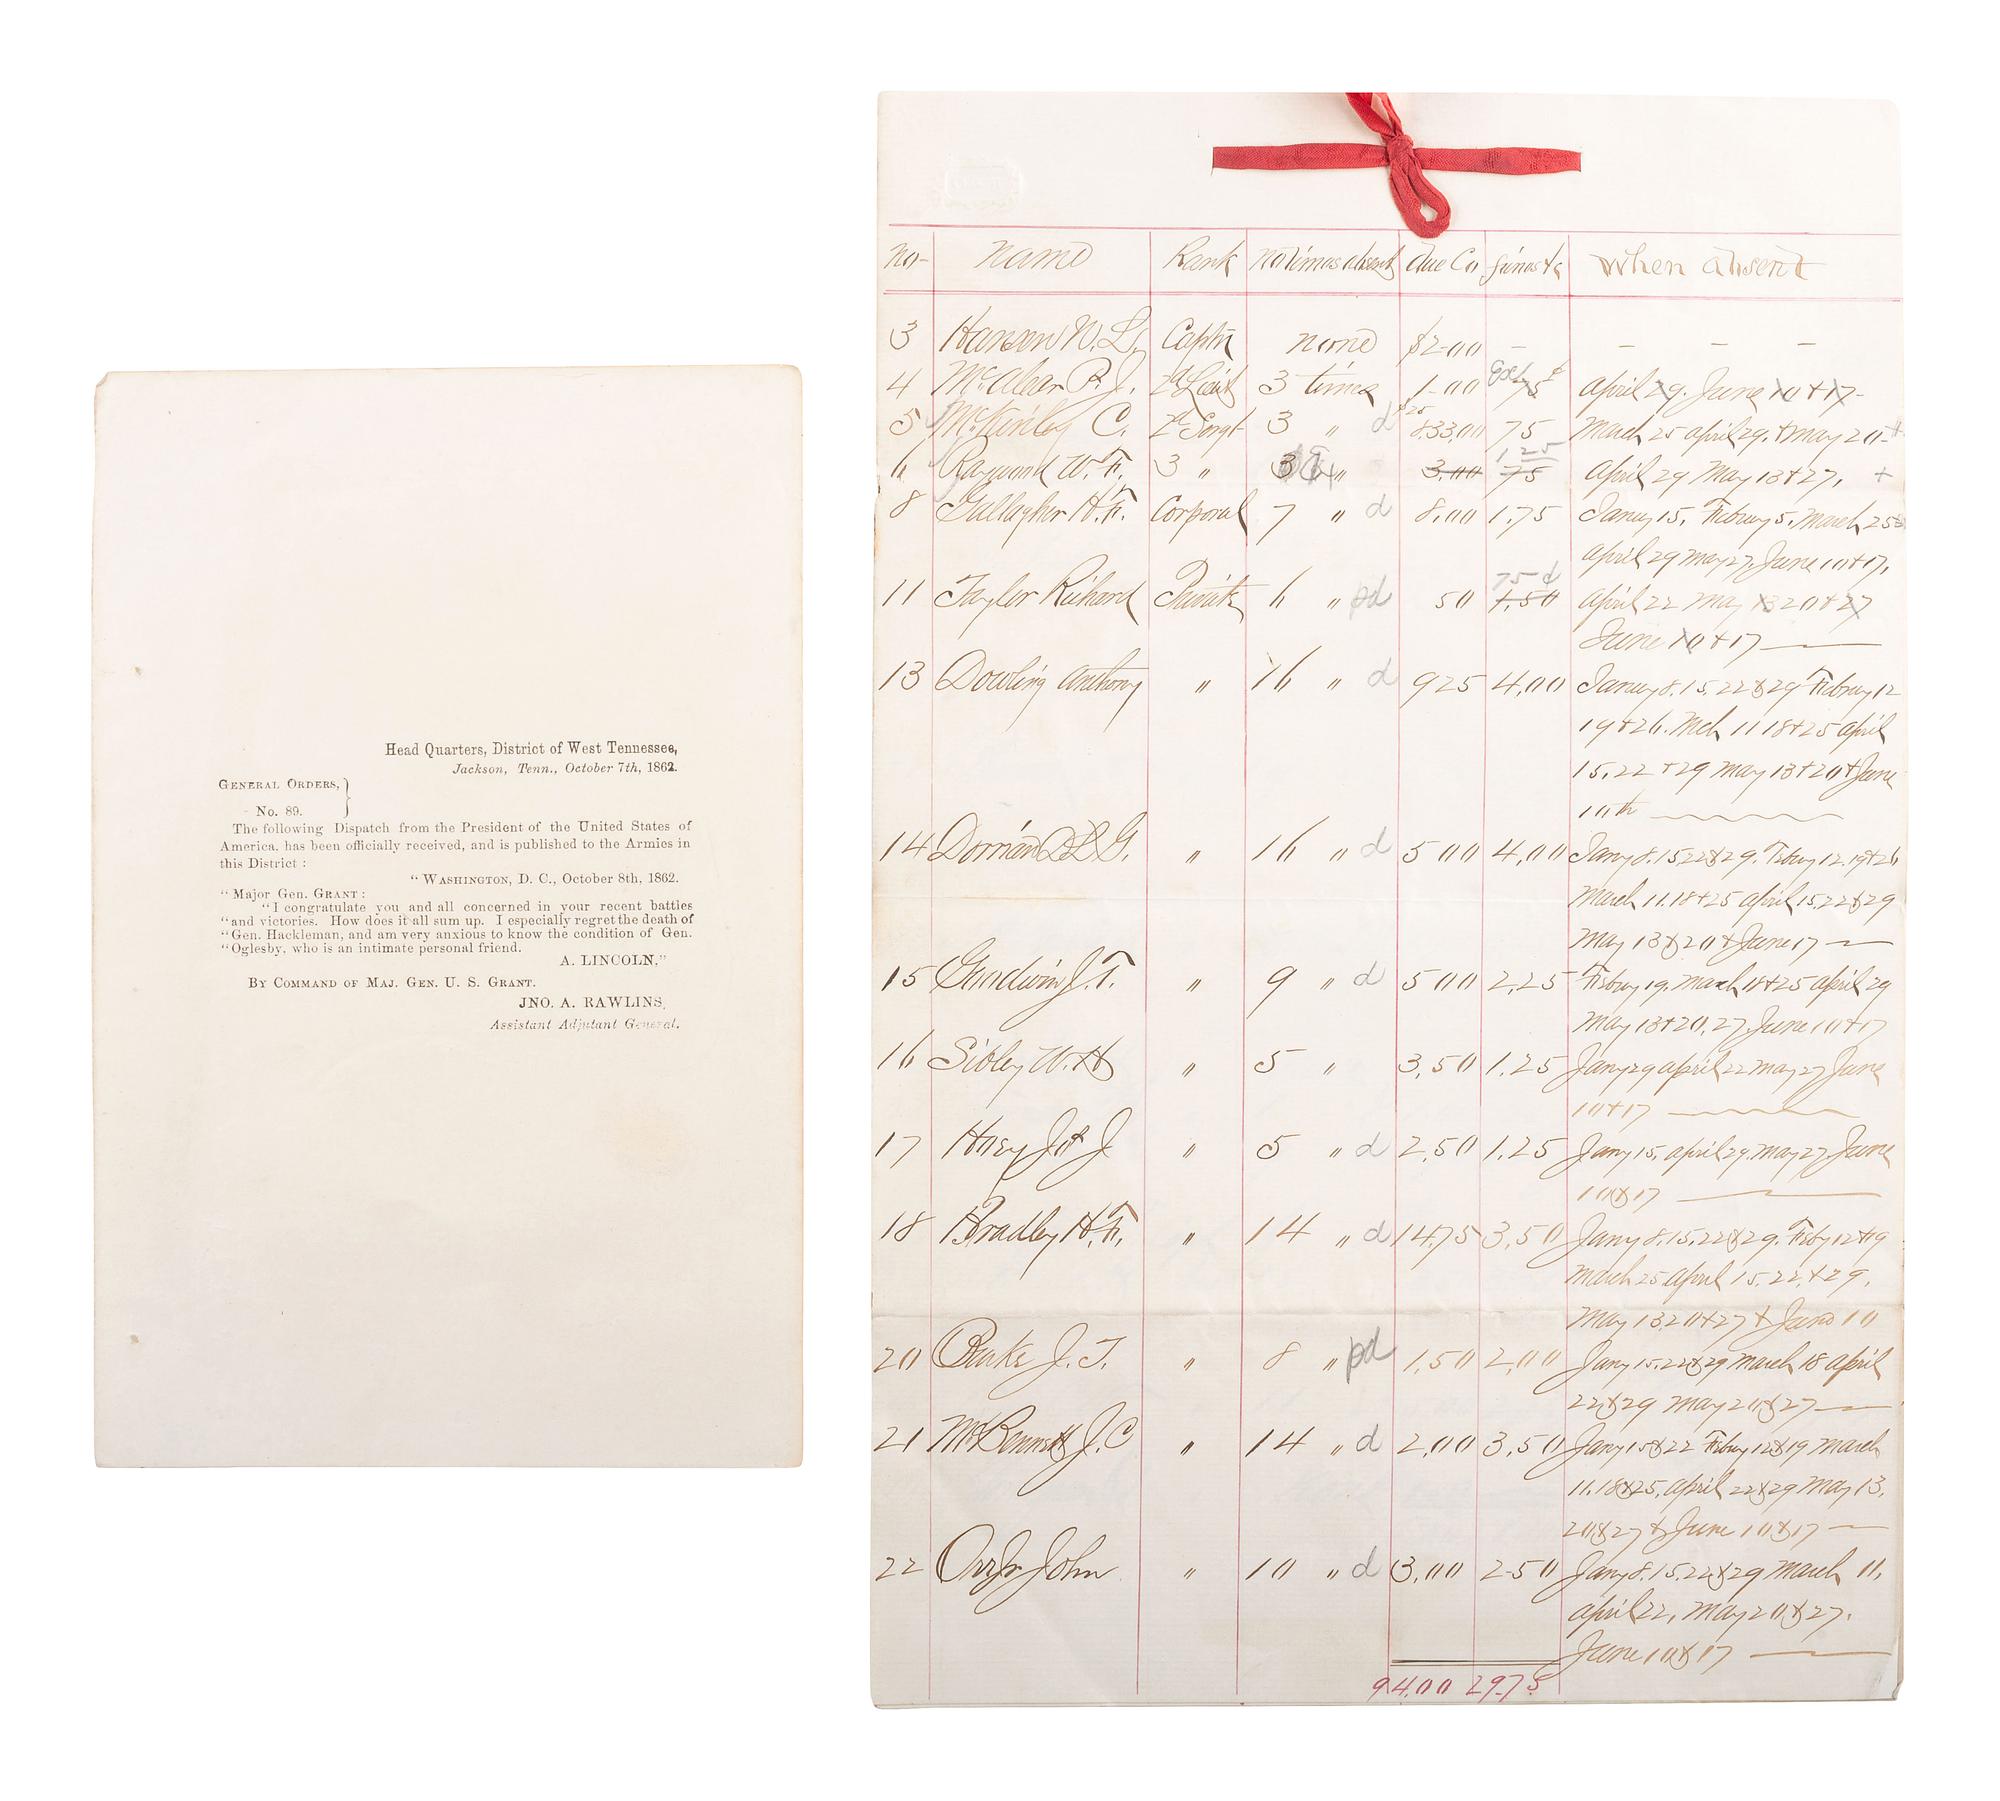 Head Quarters, District of West Tennessee,
Jackson, Tenn., October 7th, 1862.
General Orders,
No. 89.
The following Dispatch from the President of the United States of
America, has been officially received, and is published to the Armies in
this District :
" Washington, D. C., October 8th, 1862.
" Major Gen. Grant :
"I congratulate you and all concerned in your recent battles
"and victories. How does it all sum up. I especially regret the death of
"Gen. Hackleman, and am very anxious to know the condition of Gen.
"Oglesby, who is an intimate personal friend.
A. LINCOLN."
By Command of Maj. Gen. U. S. Grant.
JNO. A. RAWLINS,
Assistant Adjutant General.
no- name Rank no times absent due Co fines &c when absent
3 Hanson W. L. Captn none $2.00 - - - -
4 McAlear P. J. 2d Lieut 3 times 1.00 75 April 29. June 10 + 17 -
5 McKinley C. 2d Sergt 3 " d 8.33.00 75 March 25 April 29. + May 20 -
6 Raymond W. F. 3 " 3 " 3.00 75 1.25 April 29 May 13 + 27, +
8 Gallagher H. F. Corporal 7 " d 8.00 1.75 Janry 15, Febury 5, March 25
April 29 May 27, June 10 + 17,
11 Taylor Richard Private 6 " pd 50 1.50 75 April 22 May 13 20 + 27
June 10 + 17
13 Dowling Anthony " 16 " d 9 25 4.00 Janury 8. 15. 22 & 29 Febury 12
19 + 26. Mch 11 18 + 25 April
15. 22 + 29 May 13 + 20 + June
10th
14 Dornan G. " 16 " d 5 00 4.00 Jany 8. 15 22 & 29. Febury 12. 19 + 26
March 11. 18 + 25 April 15. 22 & 29
May 13 & 20 + June 17
15 Goodwin J. T. " 9 " d 5 00 2.25 Febury 19. March 18 + 25 April 29
May 13 + 20. 27 June 10 + 17
16 Sibley W. H " 5 " 3.50 1.25 Jany 29 April 22 May 27 June
10 + 17
17 Hoey J " 5 " d 2.50 1.25 Jany 15. April 29. May 27 June
10 & 17
18 Bradley H. F. " 14 " d 14.75 3.50 Jany 8. 15. 22 & 29. Feby 12 + 19
March 25 April 15. 22. + 29.
May 13. 20 + 27 + June 10
20 Burke J. T. " 8 " pd 1.50 2.00 Jany 15. 22 & 29 March 18 April
22 & 29 May 20 & 27
21 J. C " 14 " d 2.00 3.50 Jany 15 & 22 Febury 12 & 19 March
11. 18 & 25, April 22 & 29 May 13.
20 & 27 + June 10 & 17
22 Orr Jr John " 10 " d 3.00 2 50 Jany 8. 15. 22 & 29 March 11,
April 22, May 20 & 27.
June 10 & 17
94.00 29.75